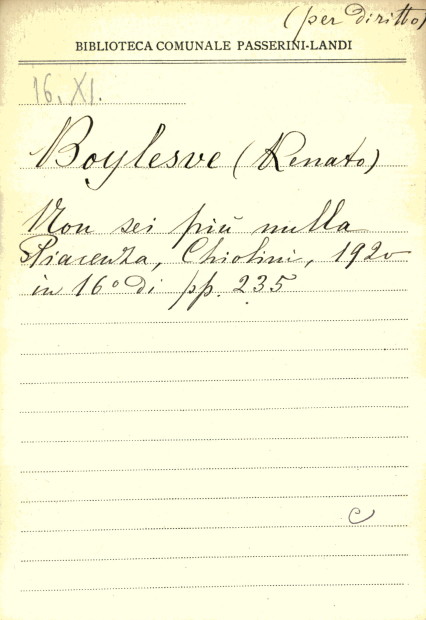 (per diritto)
BIBLIOTECA COMUNALE PASSERINI-LANDI
16. XI.
Boylesve (Renato)
Non sei più nulla
Piacenza, Chiolini, 1920
in 16° di pp. 235
C